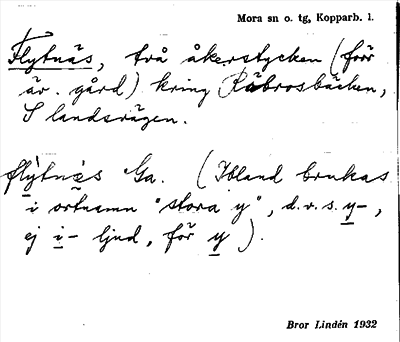 Mora sn o. tg, Kopparb. l.
Flytnäs, två åkerstycken (förr
äv. gård) kring Råbrosbäcken,
S landsvägen.
flỳtnä́s Ga. (Ibland brukas
i ortnamn "stora y", d.v.s. y-,
ej i- ljud, för y).
Bror Lindén 1932